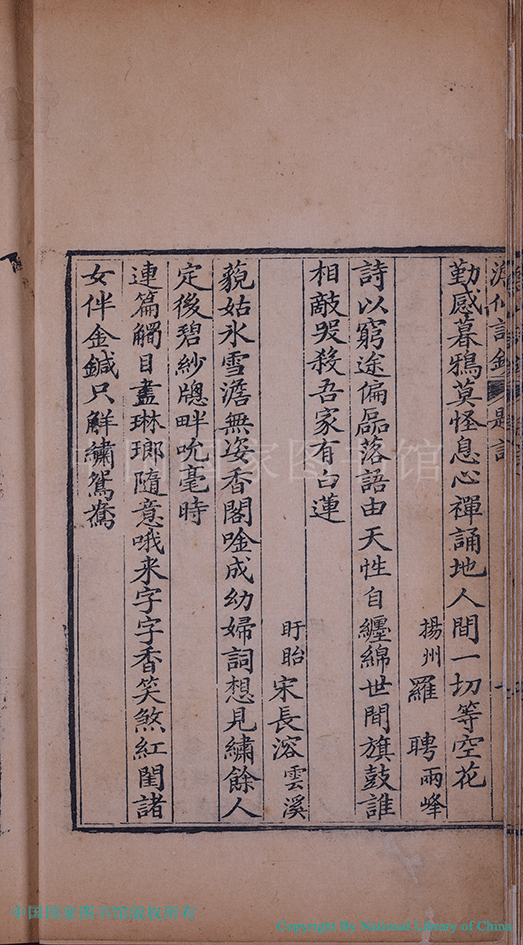 勤感暮鴉莫怪息心禪誦地人間一切等空花
揚州羅聘兩峰
詩以窮途偏磊落語由天性自纏綿世間旗鼓誰
相敵哭殺吾家有白蓮
盱眙宋長溶雲溪
藐姑氷雪澹無姿香閣唫成幼婦詞想見繡餘人
定後碧紗牕畔吮毫時
連篇觸目盡琳瑯隨意哦来字字香笑煞紅閨諸
女伴金鍼只觧繡鴛鴦
中国国家图书馆
中国国家图书馆版权所有
Copyright By National Library of China